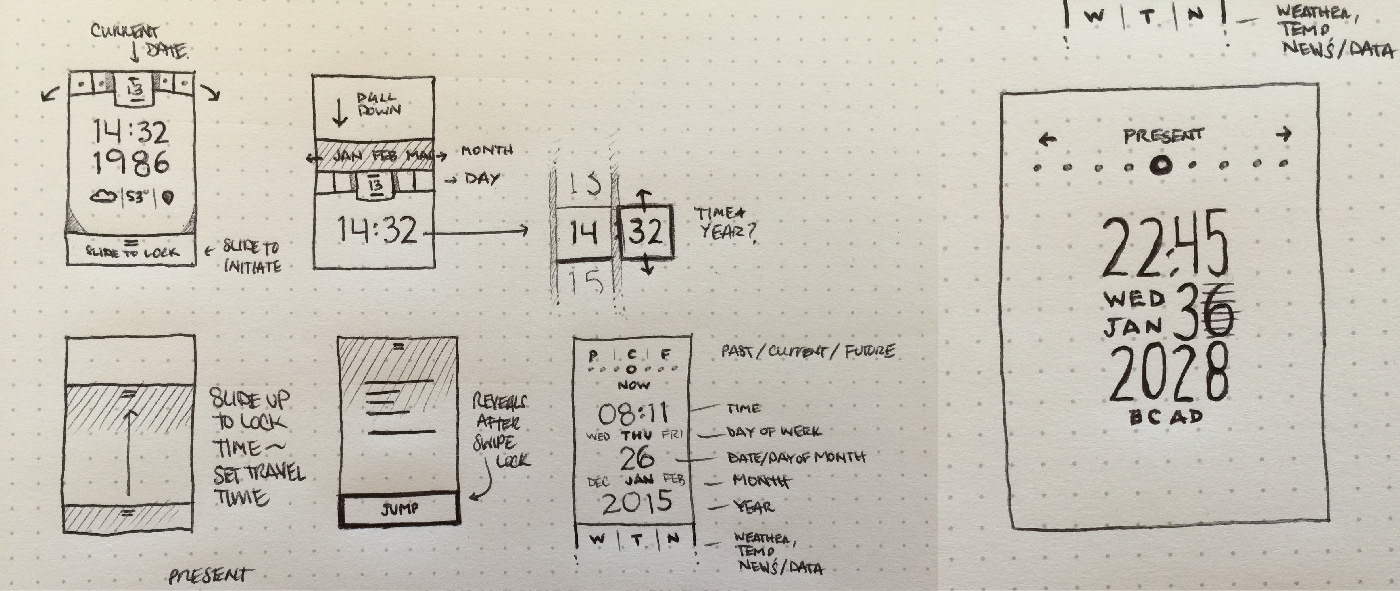 CURRENT
DATE.
13
14:32
1986
53°
SLIDE TO LOCK
SLIDE TO
INITIATE
PULL
DOWN
JAN FEB MAR
MONTH
13
DAY
14:32
13
14 32
15
TIME+
YEAR?
SLIDE UP
TO LOCK
TIME ~
SET TRAVEL
TIME
PRESENT
JUMP
REVEALS
AFTER
SWIPE
LOCK
P | C | F
NOW
08:11
WED THU FRI
26
DEC JAN FEB
2015
W | T | N
PAST / CURRENT / FUTURE
TIME
DAY OF WEEK
DATE/DAY OF MONTH
MONTH
YEAR
WEATHER,
TEMP
NEWS/DATA
W | T | N
WEATHER,
TEMP
NEWS/DATA
PRESENT
22:45
WED
JAN 36
2028
BC AD